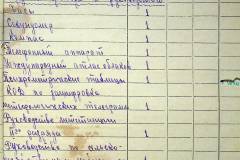 Часы 1
Секундомер 1
Компас 1
Телефонный аппарат 1
Международный атлас облаков 1
Психрометрические таблицы 1
КОД по расшифровке
метеорологических телеграмм 1
Руководство метстанциям
II го разряда 1
Руководство по